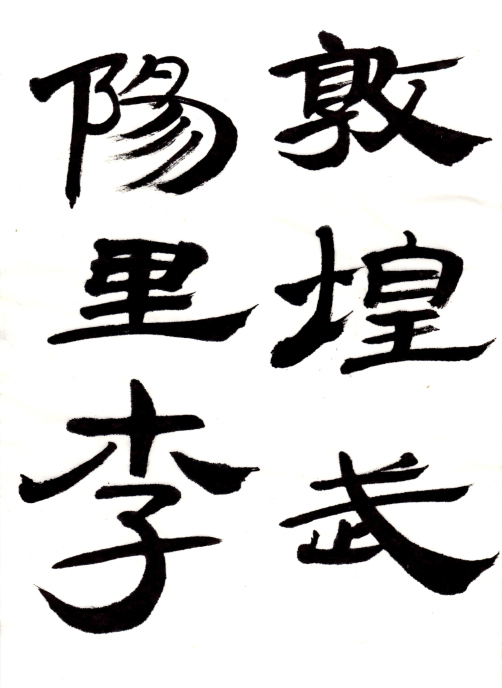 敦煌武
陽里李